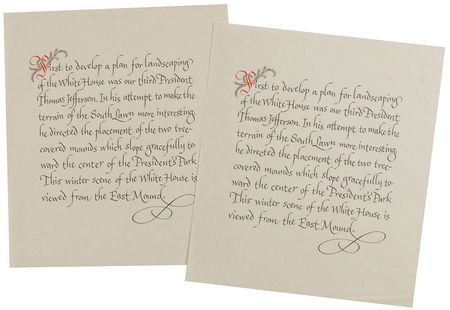 First to develop a plan for landscaping
of the White House was our third President
Thomas Jefferson. In his attempt to make the
terrain of the South Lawn more interesting,
he directed the placement of the two tree-
covered mounds which slope gracefully to-
ward the center of the President's Park
This winter scene of the White House is
viewed from the East Mound.
First to develop a plan for landscaping
of the White House was our third President
Thomas Jefferson. In his attempt to make the
terrain of the South Lawn more interesting,
he directed the placement of the two tree-
covered mounds which slope gracefully to-
ward the center of the President's Park
This winter scene of the White House is
viewed from the East Mound.